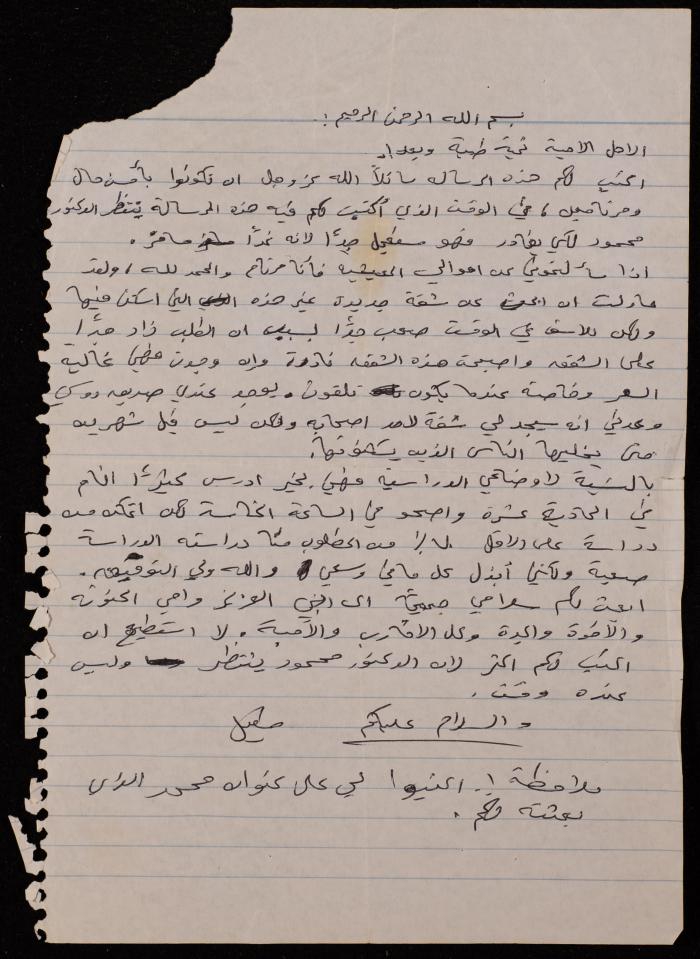 بسم الله الرحمن الرحيم :.
الاهل الاحبة تحية طيبة وبعد،
اكتب لكم هذه الرسالة سائلاً الله عز وجل ان تكونوا بأحسن حال
ومرتاحين، في الوقت الذي أكتب لكم فيه هذه الرسالة ينتظر الدكتور
محمود لكي يغادر فهو مستعجل جدًا لانه غدًا مسافر.
اذا سألتموني عن احوالي المعيشية فأنا مرتاح والحمد لله، ولقد
حاولت ان ابحث عن شقة جديدة غير هذه التي اسكن فيها
ولكن للاسف في الوقت صعب جدًا لسبب ان الطلب زاد جدًا
على الشقق واصبحت هذه الشقق نادرة وان وجدت فهي غالية
السعر وخاصة عندما يكون تلفون. يوجد عندي صديق روسي
وعدني انه سيجد لي شقة لاحد اصحابه ولكن ليس قبل شهرين
حتى يخليها الناس الذين يسكنونها.
بالنسبة لاوضاعي الدراسية فهي بخير ادرس كثيرًا انام
في الحادية عشرة واصحو في الساعة الخامسة لكي اتمكن من
دراسة على الاقل من المطلوب منا دراسته الدراسة
صعبة ولكني أبذل كل ما في وسعي والله ولي التوفيق.
ابعث لكم سلامي جميعًا الى ابي العزيز وامي الحنونة
والأخوة واحدة وكل الأقارب والأحبة. لا استطيع ان
اكتب لكم اكثر لان الدكتور محمود ينتظر وليس
عنده وقت.
والسلام عليكم
ملاحظة :. اكتبوا لي على عنوان محمود الذي
بعثته لكم.